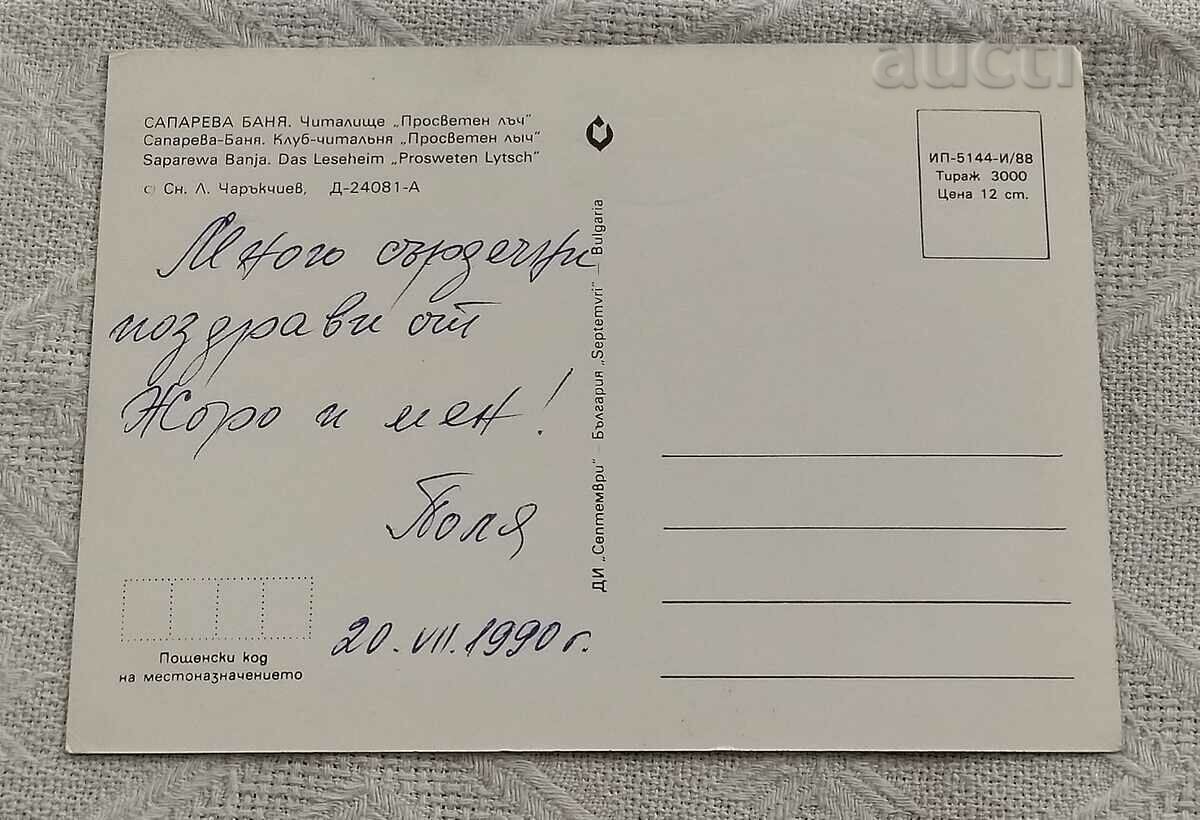 aucti
САПАРЕВА БАНЯ. Читалище „Просветен лъч"
Сапарева-Баня. Клуб-читальня „Просветен лыч"
Saparewa Banja. Das Leseheim „Prosweten Lytsch"
© Сн. Л. Чаръкчиев, Д-24081-А
Много сърдечни
поздрави от
Жоро и мен!
Поля
20. VII. 1990 г.
Пощенски код
на местоназначението
ДИ „Септември" — България „Septemvri" — Bulgaria
ИП-5144-И/88
Тираж 3000
Цена 12 ст.